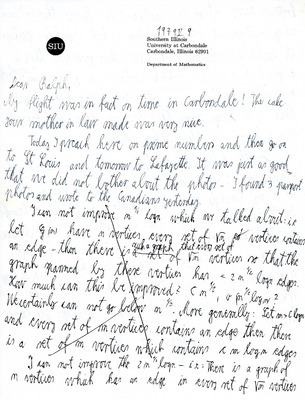 1979 II 9
SIU
Southern Illinois
University at Carbondale
Carbondale, Illinois 62901
Department of Mathematics
Dear Ralph,
My flight was in fact on time in Carbondale! The cake
your mother in law made was very nice.
Today I preach here on prime numbers and then go on
to St Louis and tomorrow to Lafayette. It was just as good
that we did not bother about the photo - I found 3 passport
photos and wrote to the Canadians yesterday.
I can not improve n^½ log n which we talked about: i.e.
let G(n) have n vertices, every set of √n vertices contains
an edge - then there is a set of √n vertices so that the
graph spanned by these vertices has < 2 n^½ log n edges.
How much can this be improved? C n^½
We certainly can not go below n^½. More generally: Let m < c log n
and every set of m vertices contains an edge then there
is a set of m vertices which contains < m log m edges
I can not improve the 2 n^½ log n - i.e. There is a graph of
n vertices which has an edge in every set of √n vertices